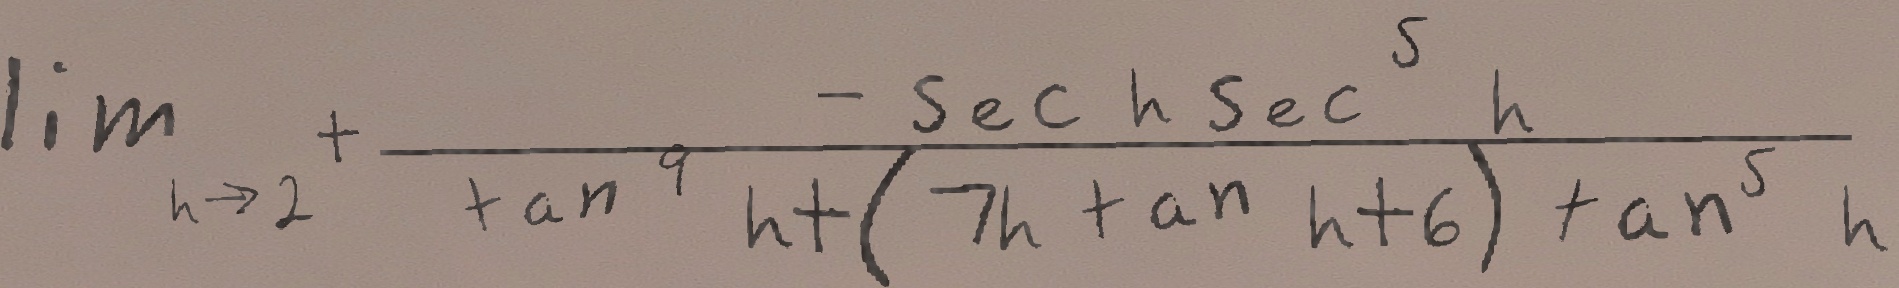 \lim_{h \to 2^+} \frac{-\sec h \sec^5 h}{\tan^9 h + (7h \tan h + 6) \tan^5 h}